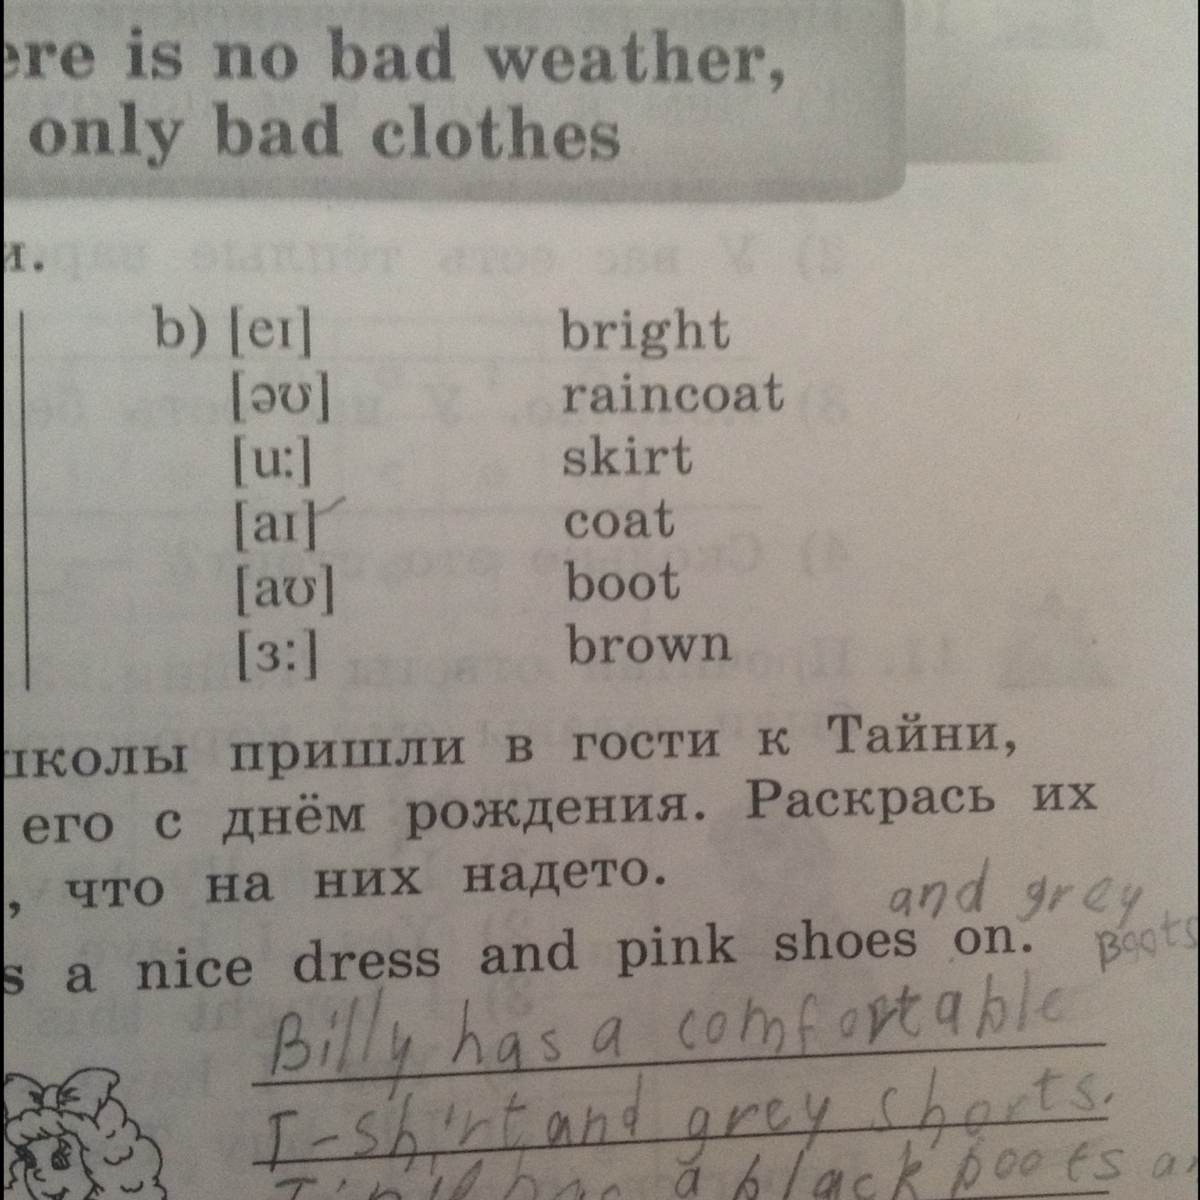 ere is no bad weather,
only bad clothes
и.
b) [eɪ] bright
[əʊ] raincoat
[u:] skirt
[aɪ] coat
[aʊ] boot
[ɜ:] brown
школы пришли в гости к Тайни,
его с днём рождения. Раскрась их
, что на них надето.
and grey
Boots
s a nice dress and pink shoes on.
Billy has a comfortable
T-shirt and grey shorts.
a black boots